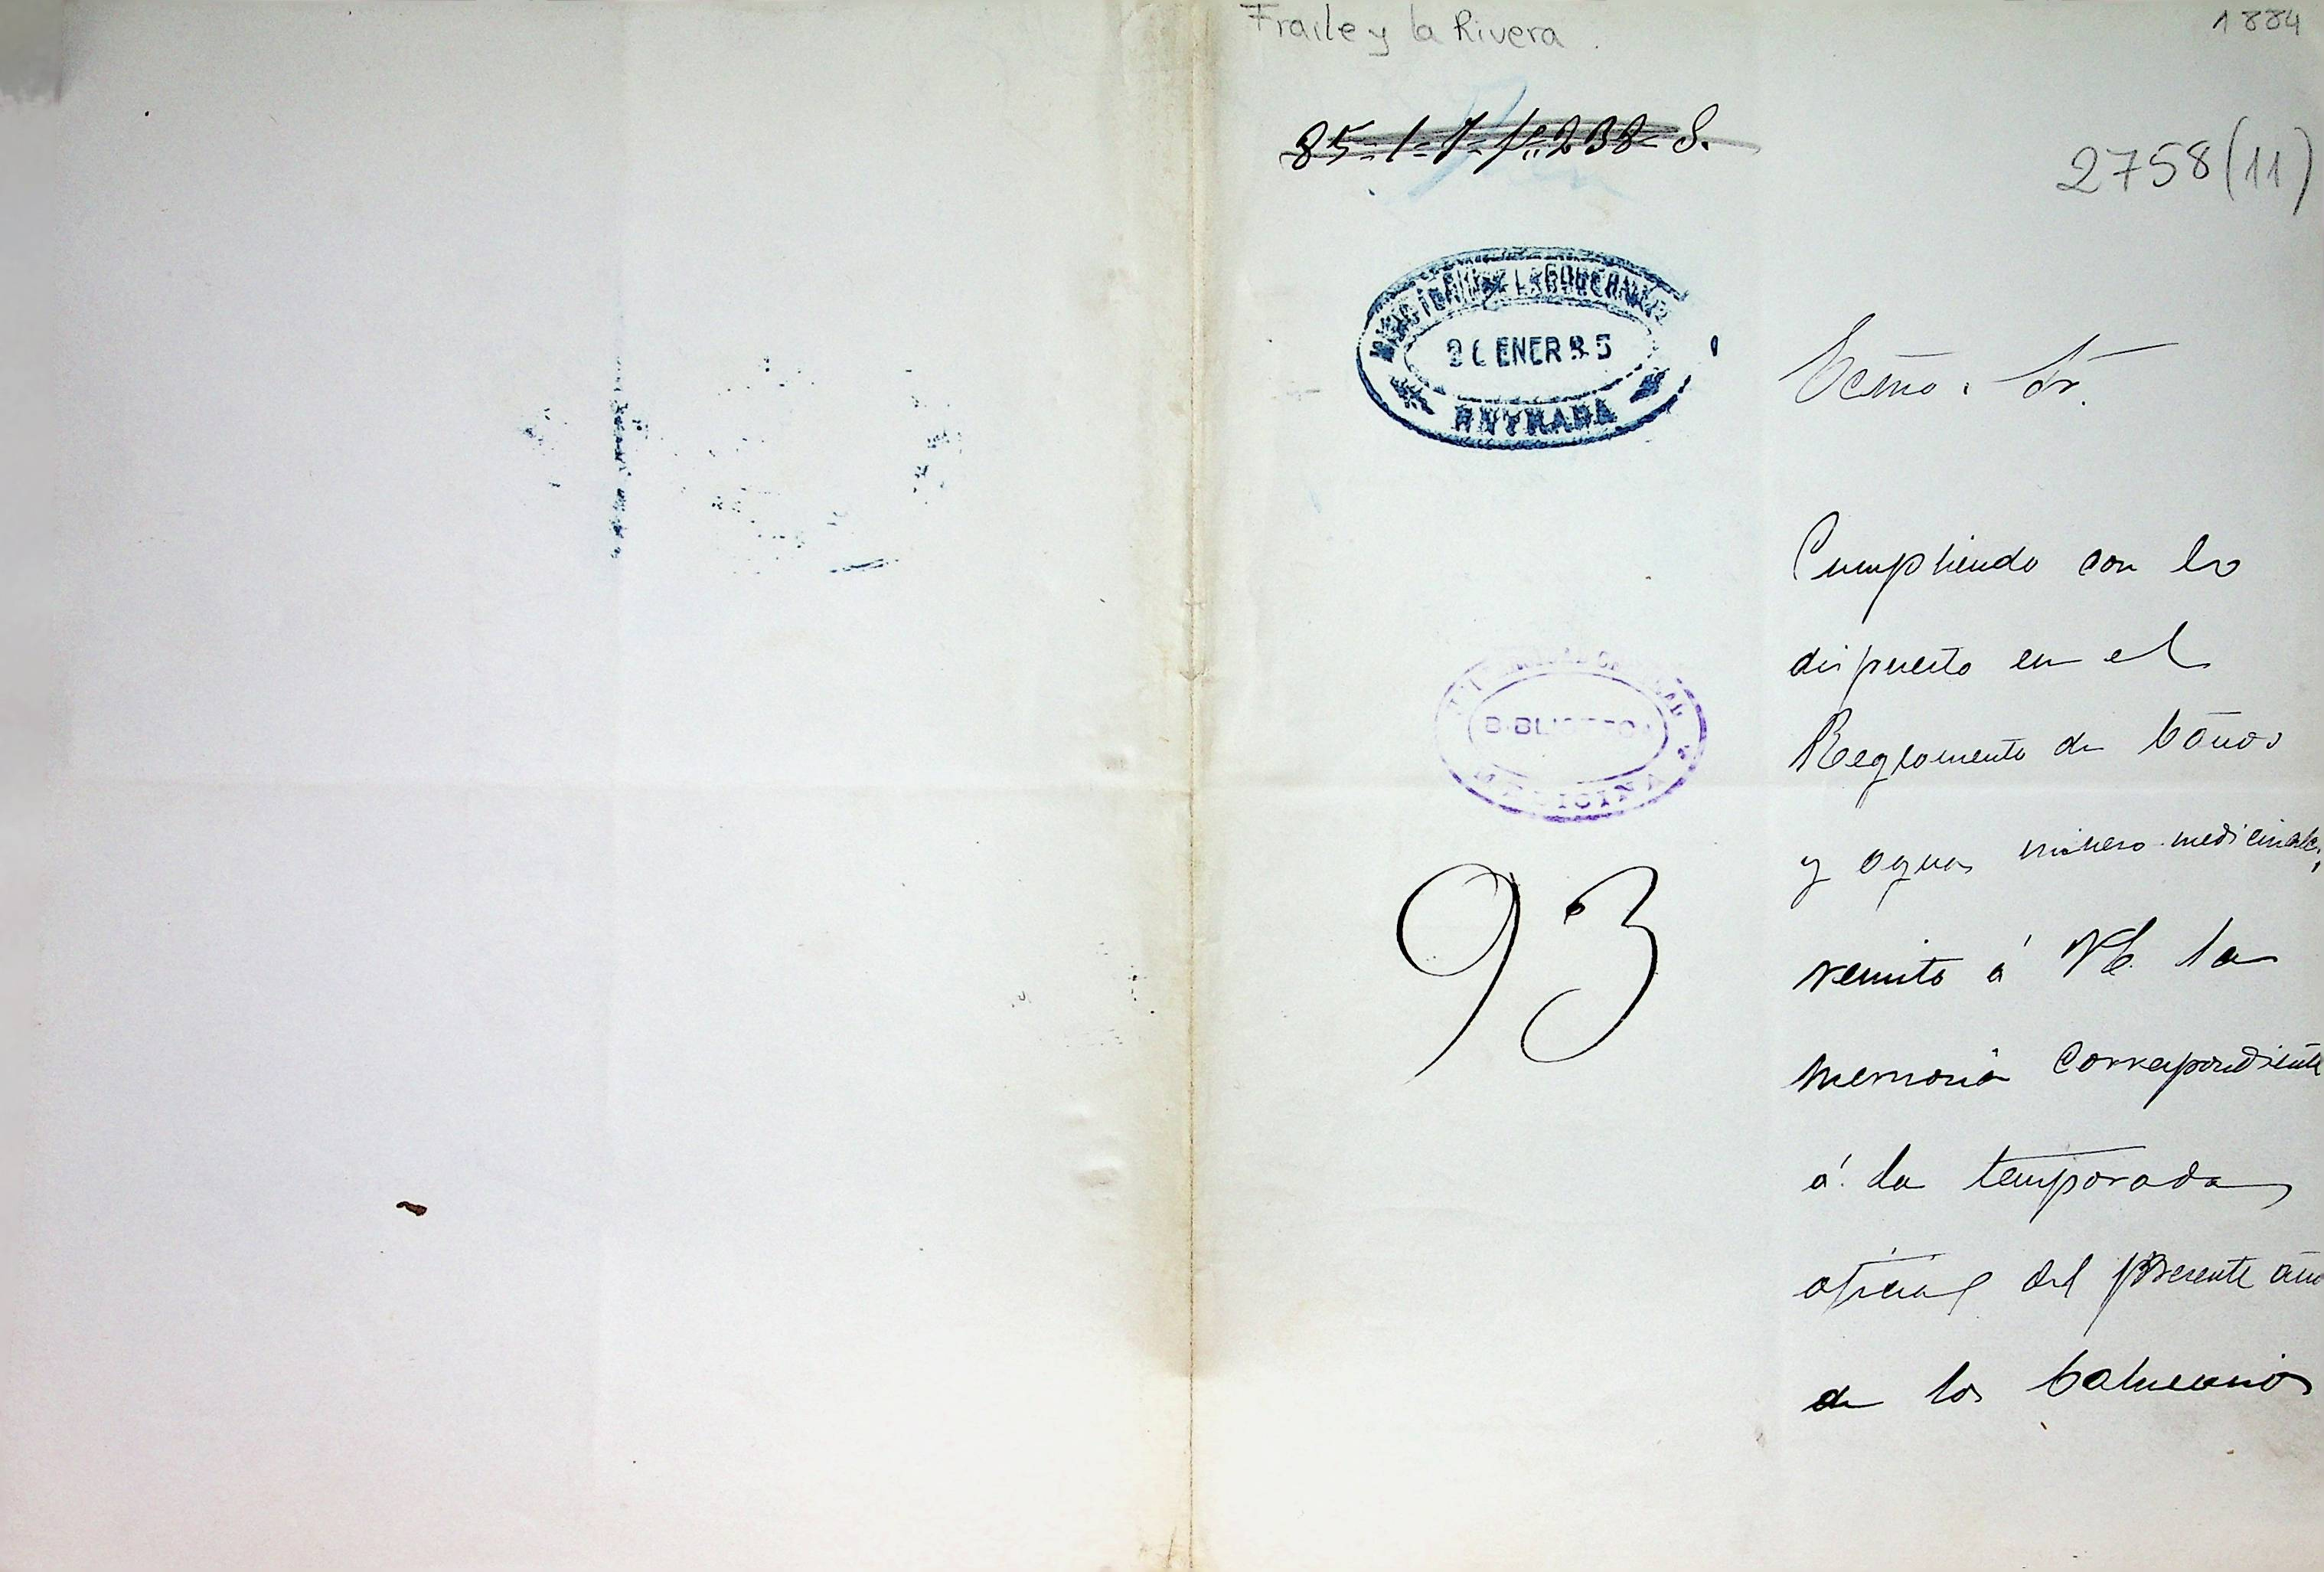 Fraile y la Rivera.
1884
85-1-7-Nº238-S.
2758(11)
MINISTERIO DE LA GOBERNACION
ENER 85
ENTRADA
Ecmo. Sr.
Cumpliendo con lo
dispuesto en el
BIBLIOTECA
MEDICINA
Reglamento de baños
y aguas minero-medicinales,
93
remito á VE. la
memoria correspondiente
á la temporada
oficial del presente año
de los balnearios